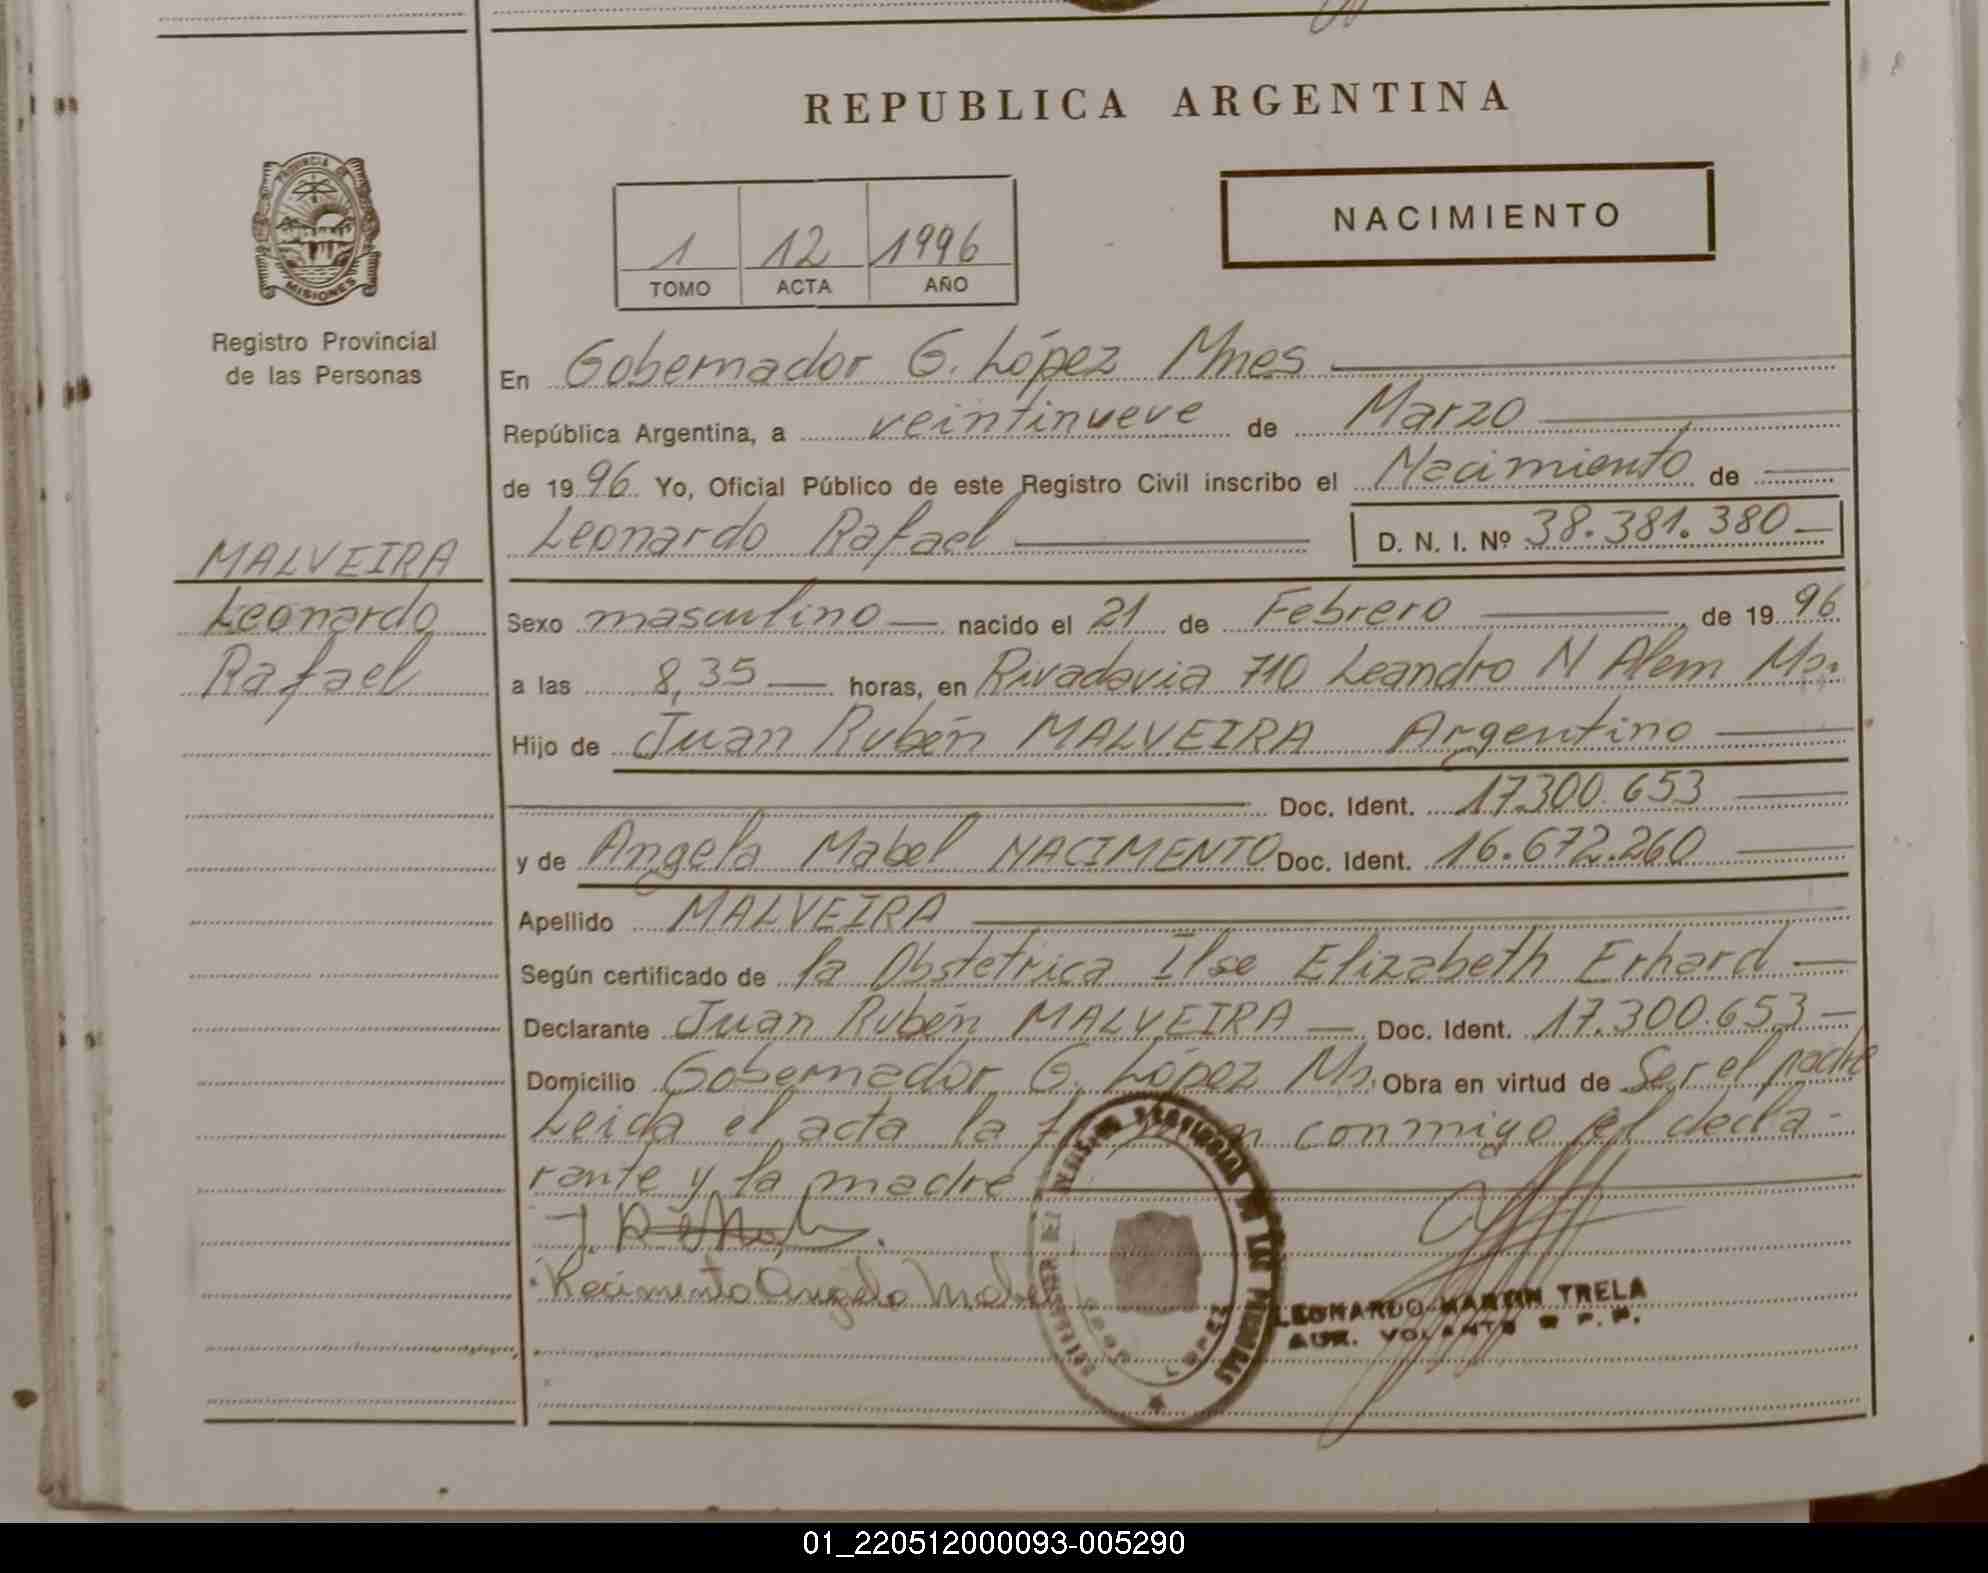 REPUBLICA ARGENTINA
PROVINCIA DE
MISIONES
Registro Provincial
de las Personas
NACIMIENTO
1 12 1996
TOMO ACTA AÑO
En Gobernador G. López Mnes
República Argentina, a veintinueve de Marzo
de 1996 Yo, Oficial Público de este Registro Civil inscribo el Nacimiento de
Leonardo Rafael D. N. I. Nº 38.381.380
MALVEIRA
Leonardo
Rafael
Sexo masculino nacido el 21 de Febrero de 1996
a las 8,35 horas, en Rivadavia 710 Leandro N Alem Ms.
Hijo de Juan Rubén MALVEIRA Argentino
Doc. Ident. 17.300.653
y de Angela Mabel NACIMENTO Doc. Ident. 16.672.260
Apellido MALVEIRA
Según certificado de la Obstetrica Ilse Elizabeth Erhard
Declarante Juan Rubén MALVEIRA Doc. Ident. 17.300.653
Domicilio Gobernador G. López Ms. Obra en virtud de Ser el padre
Leida el acta la conmigo el decla-
rante y la madre
Nacimento Angela Mabel
LEONARDO MARTIN TRELA
AUX. VOLANTE R P. P.
01_220512000093-005290